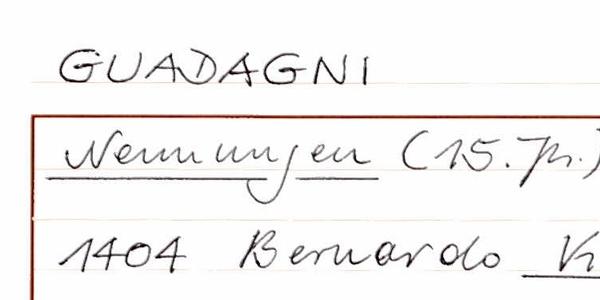 GUADAGNI
Nennungen (15. Jh.)
1404 Bernardo